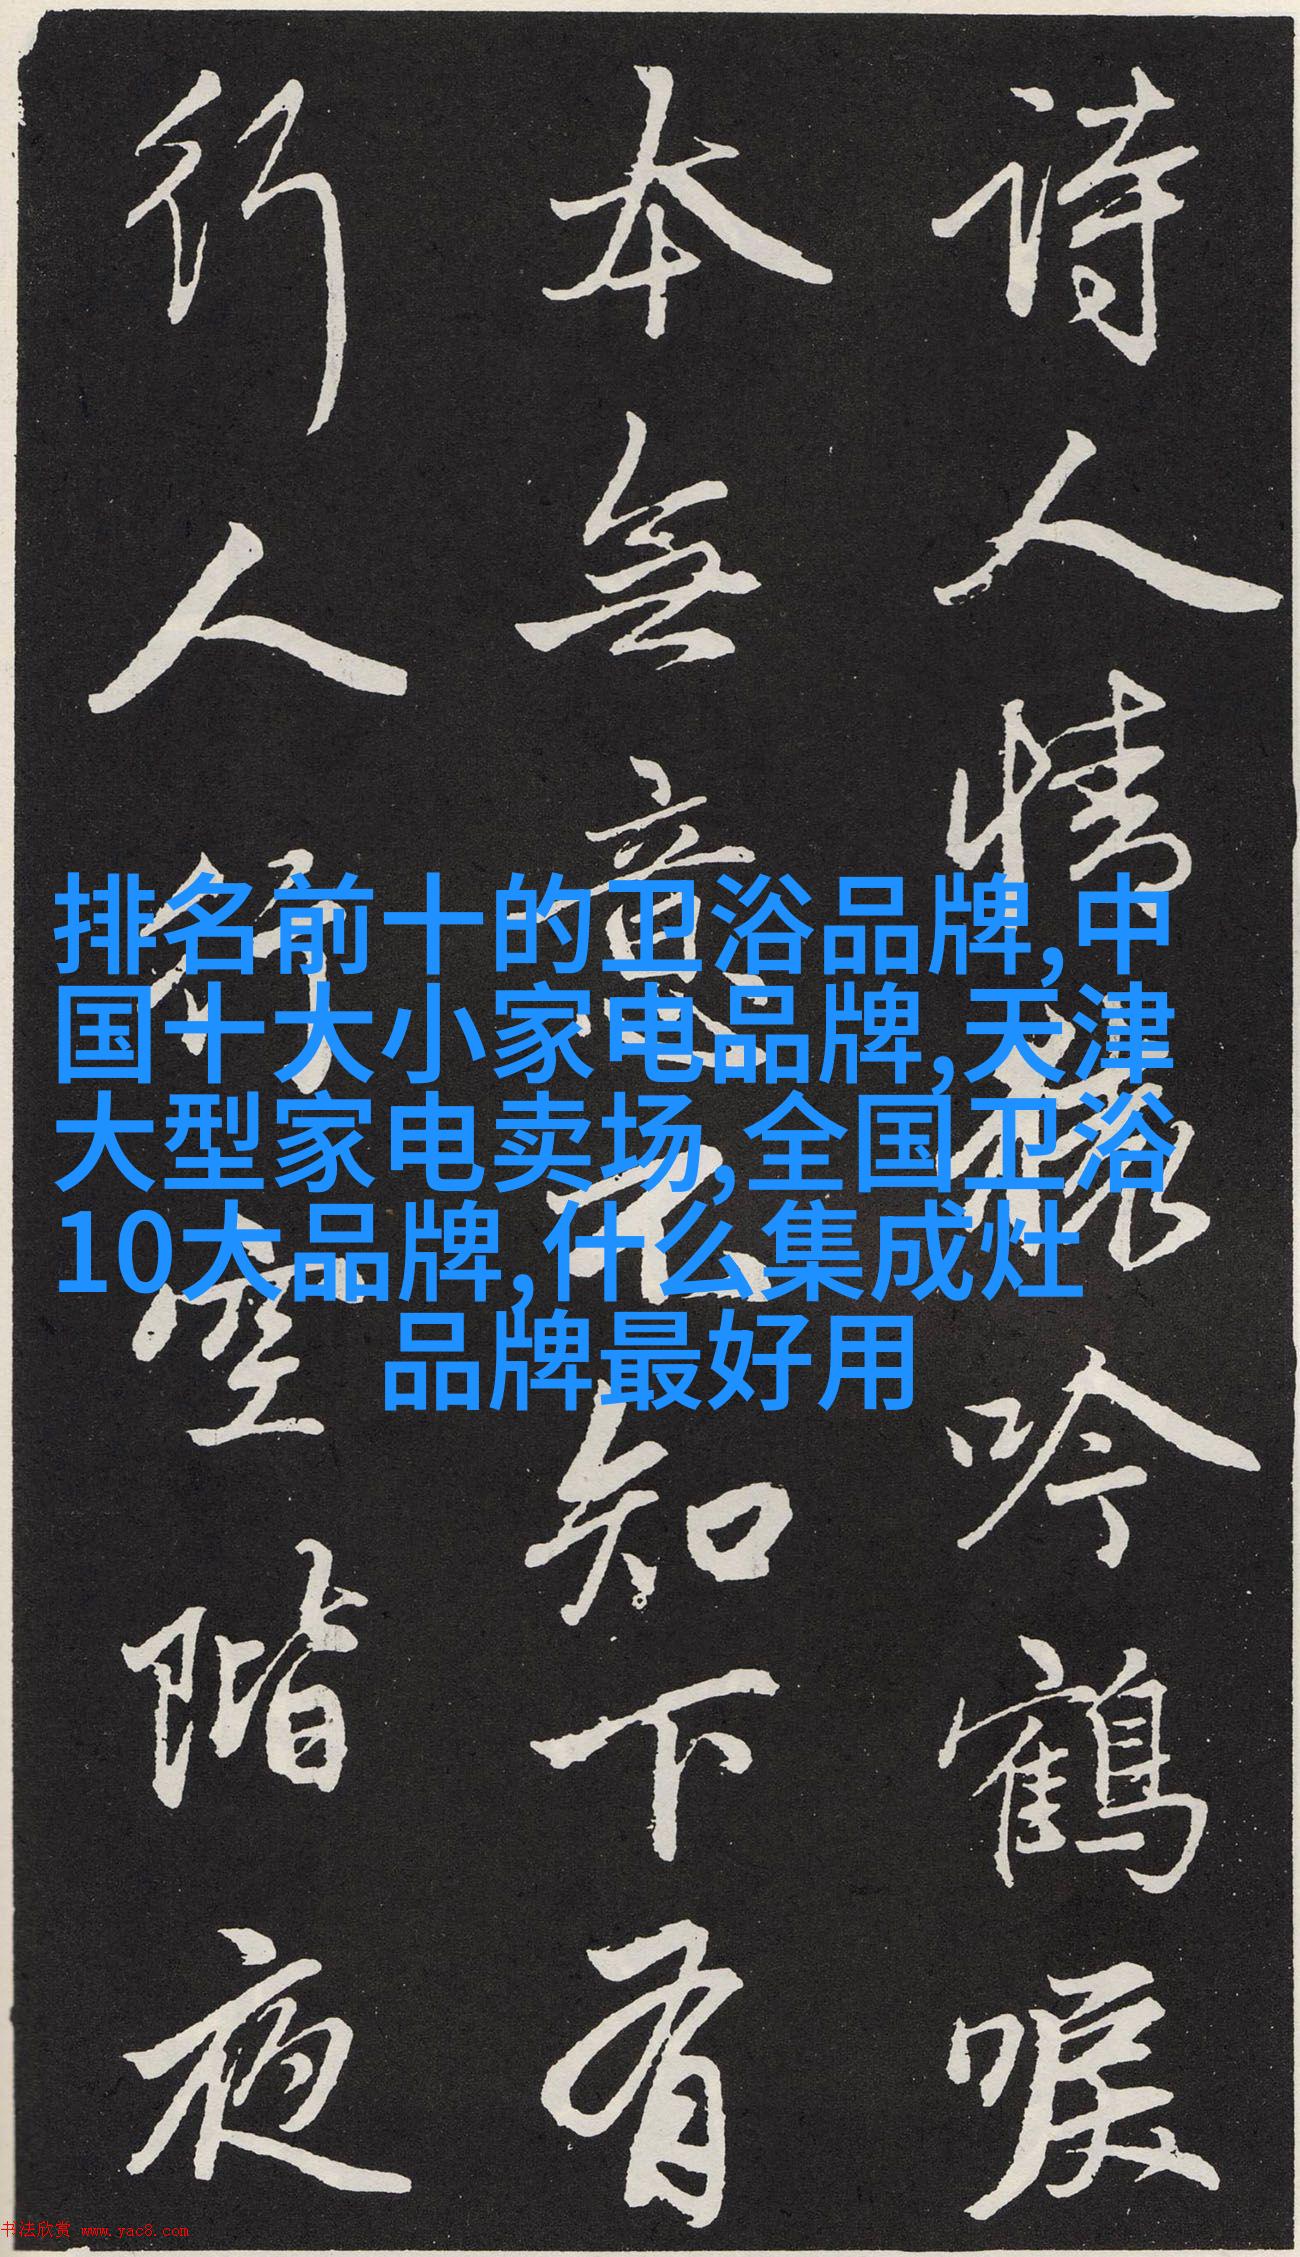 排名前十的卫浴品牌,中
国十大小家电品牌,天津
大型家电卖场,全国卫浴
10大品牌,什么集成灶
品牌最好用
诗人情吟鶴唳
本無意不知下有
行人行空階夜
书法欣赏 www.yac8.com